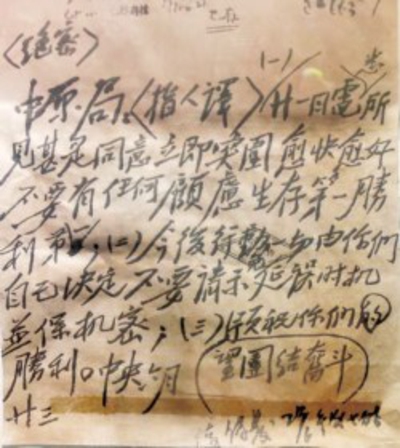 〈絕密〉
(一) 悉
中原局:〈指人譯〉廿一日電所
見甚是同意立即突圍愈快愈好
不要有任何顧慮生存第一勝
利第一;(二)今後行動一切由你們
自己決定不要請示延誤时机
並保机密;(三)預祝你們的
勝利。中央六月 望團結奮斗
廿三